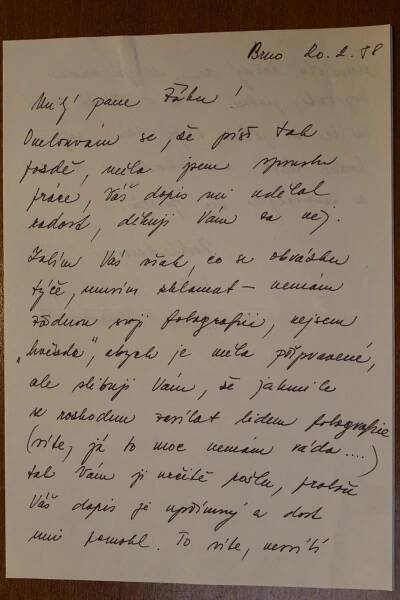 Brno 20. 2. 88
Milý pane Žáku!
Omlouvám se, že píši tak
pozdě, měla jsem spoustu
práce, Váš dopis mi udělal
radost, děkuji Vám za něj.
Zatím Vás však, co se obrázku
týče, musím zklamat – nemám
žádnou svoji fotografii, nejsem
„hvězda", abych je měla připravené,
ale slibuji Vám, že jakmile
se rozhodnu zasílat lidem fotografie
(víte, já to moc nemám ráda ....)
tak Vám ji určitě pošlu, protože
Váš dopis je upřímný a dost
mi pomohl. To víte, nesvítí